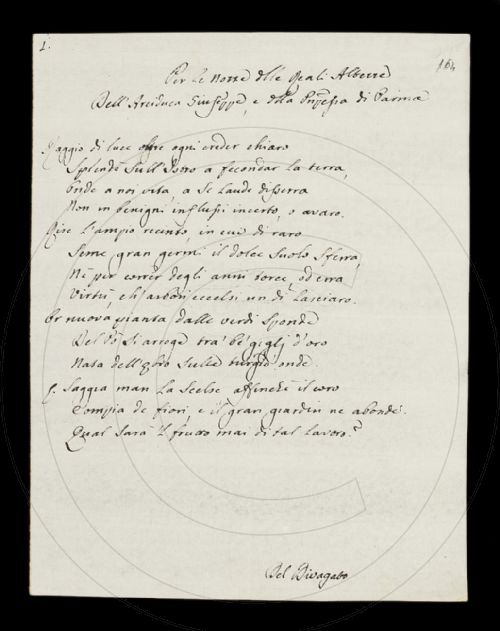 1.
164
Per le Nozze delle Reali Altezze
Dell'Arciduca Giuseppe, e della Prpessa di Parma
Raggio di luce oltre ogni creder chiaro
Splende sull'Istro a fecondar la terra,
Onde a noi vita, a se laude disserra
Non in benigni influssi incerto, o avaro.
Gire l'ampio recinto, in cui di raro
Seme gran germi il dolce suolo sferra,
Nè per correr degli anni torce, od erra
Virtù, ch'arbori eccelsi un dì lasciaro.
Or nuova pianta dalle verdi sponde
Del Pò si arroge tra' be' giglj d'oro
Nata dell' sulle turgid' onde.
E saggia man la scelse, affinchè il coro
Compia de fiori, e il gran giardin ne abonde.
Qual sarà 'l frutto mai di tal lavoro?
Del Divagato